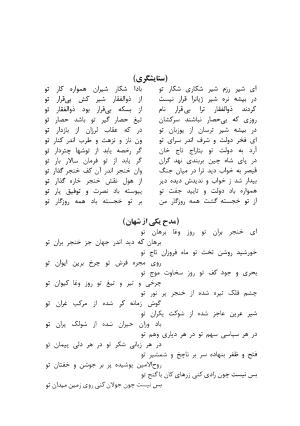 (ستایشگری)
ای شیر رزم شیر شکاری شکار تو بادا شکار شیران همواره کار تو
در بیشه نره شیر ژیانرا قرار نیست از ذوالفقار شیر کش بی‌قرار تو
گردند ذوالفقار ترا بی‌قرار نام از بسکه بی‌قرار بود ذوالفقار تو
روزی که بی‌حصار نباشند سرکشان تیغ حصار گیر تو باشد حصار تو
در بیشه شیر ترسان از یوزبان تو در که عقاب لرزان از بازدار تو
ای فخر دولت و شرف اندر سرای تو ون ناز و نزهت و طرب اندر کنار تو
آرد به دولت تو بتاراج تاج خان گر رخصه یابد از توشها چتردار تو
در پای شاه چین بربندی نهد گران گر یابد از تو فرمان سالار بار تو
قیصر به خواب دید ترا در میان جنگ وان خنجر اندر آن کف خنجر گذار تو
بیدار شد ز خواب و ندیدش دیده دیر از هول نقش خنجر خنجر گذار تو
همواره باد دولت و تایید جفت تو پیوسته باد نصرت و توفیق یار تو
از تو خجسته گشت همه روزگار من بر تو خجسته باد همه روزگار تو
(مدح یکی از شهان)
ای خنجر بران تو روز وغا برهان تو
برهان که دید اندر جهان جز خنجر بران تو
خورشید روشن تخت تو ماه فروزان تاج تو
روی مجره فرش تو چرخ برین ایوان تو
بحری و جود کف تو روز سخاوت موج تو
چرخی و تیر و تیغ تو روز وغا کیوان تو
چشم فلک تیره شده از خنجر بر نور تو
گوش زمانه کر شده از مرکب غران تو
شیر عرین عاجز شده از شوکت یکران تو
باد وزان حیران شده از شولک پران تو
در هر سپاسی سهم تو در هر دیاری وهم تو
در هر زبانی شکر تو در هر دلی پیمان تو
فتح و ظفر بنهاده سر بر ناچخ و شمشیر تو
روح‌الامین پوشیده پر بر جوشن و خفتان تو
بس نیست چون رادی کنی زرهای کان با گنج تو
بس نیست چون جولان کنی روی زمین میدان تو